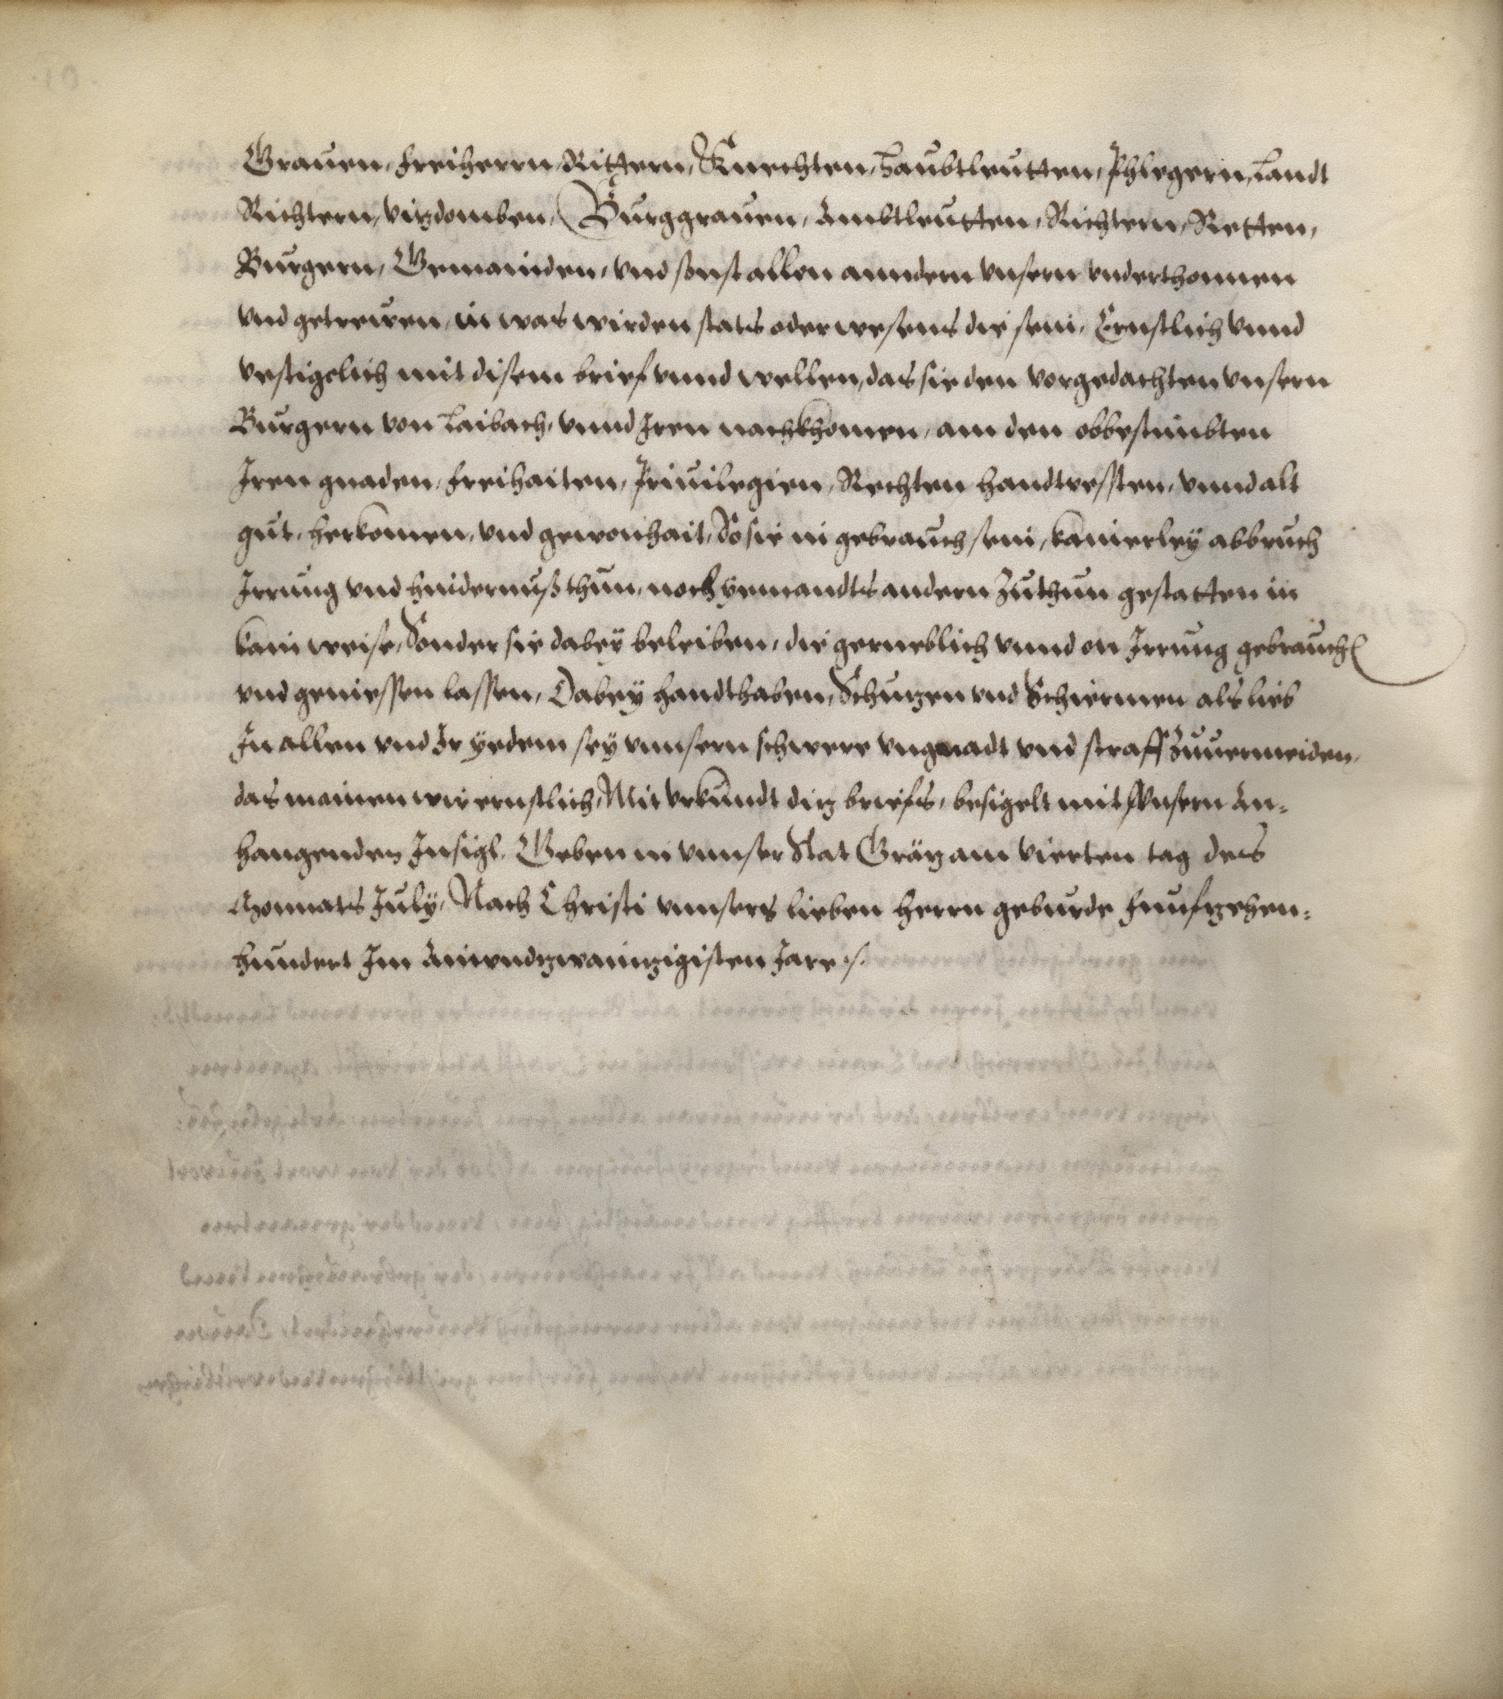 Grauen, Freiherrn, Rittern, Knechten, Haubtleutten, Phlegern, Landt
Richtern, Vitzdomben, Burggrauen, Ambtleutten, Richtern, Retten,
Burgern, Gemainden, vnd sonst allen anndern vnsern vnderthonnen
vnd getrewen, in was wirden stats oder wesens die sein, Ernstlich vnnd
vestigelich mit disem brief vnnd wellen, das sie den vorgedachten vnsern
Burgern von Laibach, vnnd Iren nachkhomen, an den obbestimbten
Iren gnaden, Freihaiten, Priuilegien, Rechten handtvessten, vnnd alt
gut, herkomen, vnd gewonhait, So sie in gebrauch sein, kainerley abbruch
Irrung vnd hindernuß thun, noch yemandts andern zuthun gestatten in
kain weise, Sonder sie dabey beleiben, die gerueblich vnnd on Irrung gebrauchen
vnd geniessen lassen, Dabey handthaben, Schutzen vnd Schiermen als lieb
In allen vnd Ir yedem sey vnnsern schwere vngnadt vnd straff zuuermeiden,
das mainen wir ernstlich, Mit vrkundt ditz briefs, besigelt mit vnsern An-
hangenden Insigl. Geben in vnnser Stat Grätz am vierten tag des
Monnats July, Nach Christi vnnsers lieben herrn geburde Funfzehen-
hundert Im Ainvndzwainzigisten Jare